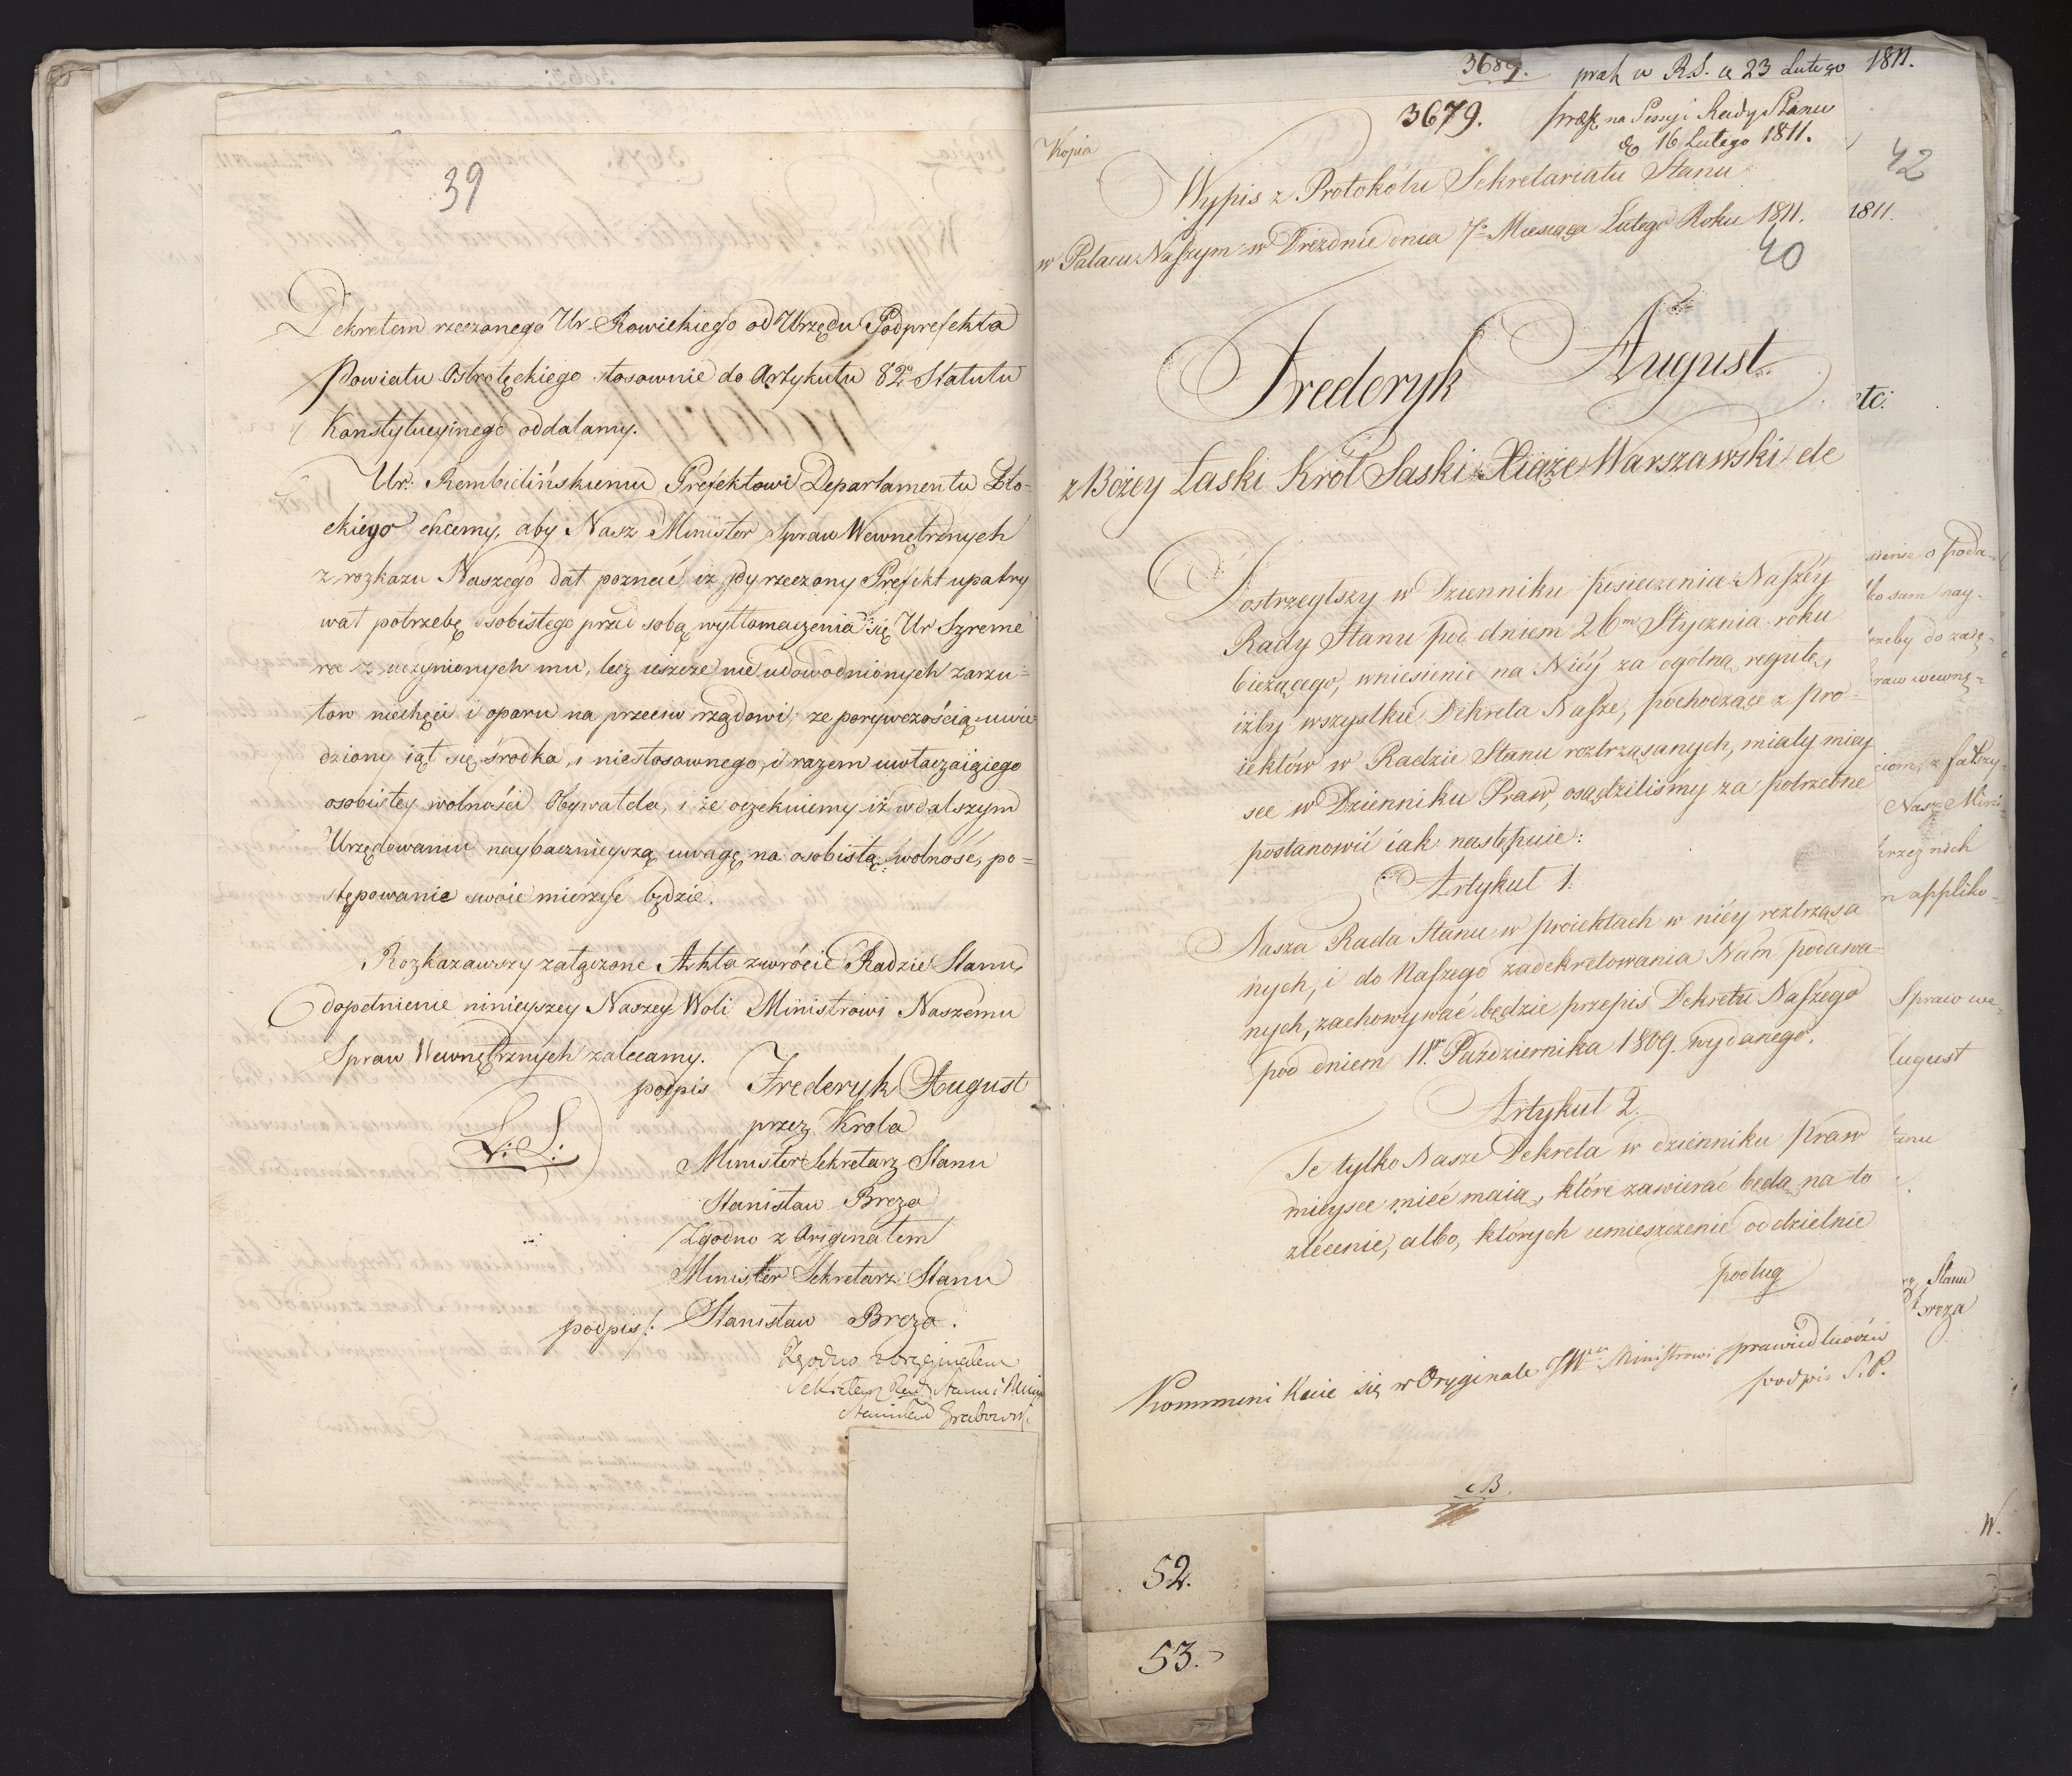 39
Dekretem rzeczonego Ur. Rowickiego od Urzędu Podprefekta
Powiatu Ostrołęckiego stosownie do Artykułu 82º Statutu
Konstytucyinego oddalamy.
Ur. Rembielińskiemu Prefektowi Departamentu Pło-
ckiego chcemy, aby Nasz Minister Spraw Wewnętrznych
z rozkazu Naszego dał poznać iż gdy rzeczony Prefekt upatry
wał potrzebę osobistego przed sobą wytłomaczenia się Ur
z uczynionych mu, lecz ieszcze nie udowodnionych zarzu-
tow niechęci i oporu na przeciw rządowi; ze porywczością uwie
dziony iął się środka, i niestosownego, i razem uwłaczaiącego
osobistey wolności Obywatela, i że oczekuiemy iż w dalszym
Urzędowaniu naybacznieyszą uwagę na osobistą wolność, po=
stępowanie swoie mierzyć będzie.
Rozkazawszy załączone Akta zwrócić Radzie Stanu,
dopełnienie ninieyszey Naszey Woli Ministrowi Naszemu
Spraw Wewnętrznych zalecamy.
podpis Frederyk August
przez Krola
L: S:
Minister Sekretarz Stanu
Stanisław Breza
Zgodno z Originałem
Minister Sekretarz Stanu
podpis/: Stanisław Breza.
Zgodno z oryginałem
Sekretarz Rady Stanu i
Stanisław Grabowski
3689. w R.S. d 23 Lutego 1811.
3679. na Sessyi Rady Stanu
d 16 Lutego 1811.
Kopia
42
Wypis z Protokółu Sekretariatu Stanu
w Pałacu Naszym w Dreznie dnia 7º Miesiąca Lutego Roku 1811.
1811.
40
Frederyk August
etc:
z Bożey Łaski Król Saski Xiąże Warszawski etc
Dostrzegłszy w Dzienniku posiedzenia Naszéy
Rady Stanu pod dniem 26m Stycznia roku
bieżącego, wniesienie na Niéy za ogólną regułę,
iżby wszystkie Dekreta Nasze, pochodzące z pro-
iektów w Radzie Stanu roztrząsanych, miały miey
sce w Dzienniku Praw, osądziliśmy za potrzebne
postanowić iak następuie:
Artykuł 1.
Nasza Rada Stanu w proiektach w niéy roztrząsa
nych, i do Naszego zadekretowania Nam podawa-
nych, zachowywać będzie przepis Dekretu Naszego
pod dniem 11. Października 1809. wydanego.
Artykuł 2.
Te tylko Nasze Dekreta w dzienniku Praw
mieysce mieć maią, które zawierać będą na to
zlecenie, albo, których umieszczenie oddzielnie
podług
o poda-
ko sam nay-
rzeby do
raw wewnę-
z fałszy-
Nasz Mini-
przez nich
n appliko-
Spraw we
ugust
Stanu
Breza
Kommunikuie się w Oryginale Ministrowi Sprawiedliwości
podpis S.P.
B
52.
53.